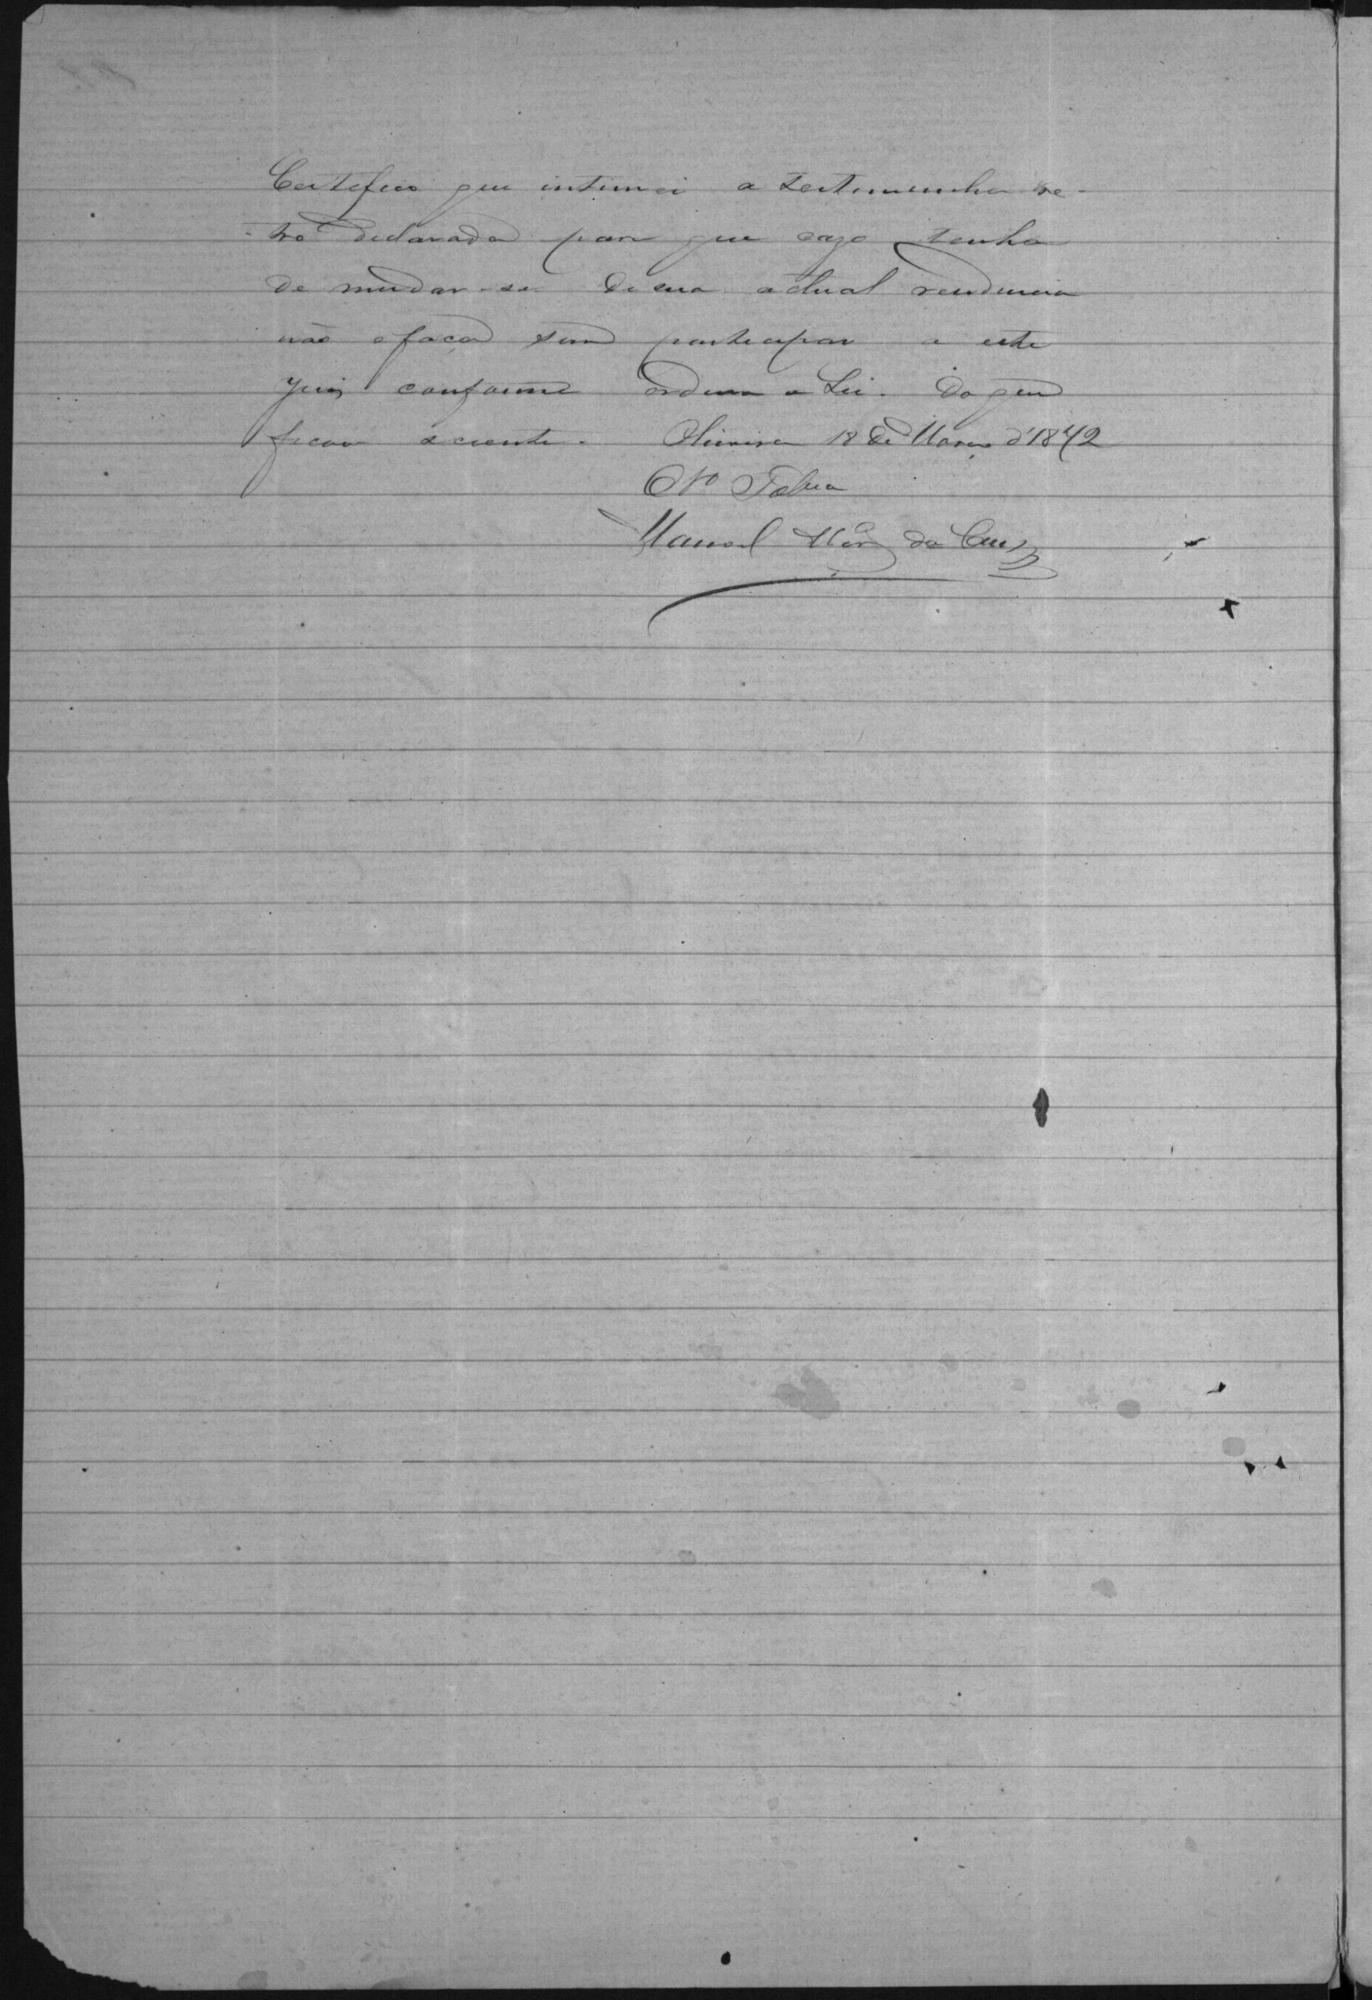 Certefico que intimei a testemunha re-
tro declarada para que cazo tenha
de mudar-se de sua actual rezidencia
não o faça sem participar a este
Juis conforme ordena a Lei. Do que
ficou sciente. Oliveira 18 de Março d'1872
O
Manoel da Crus